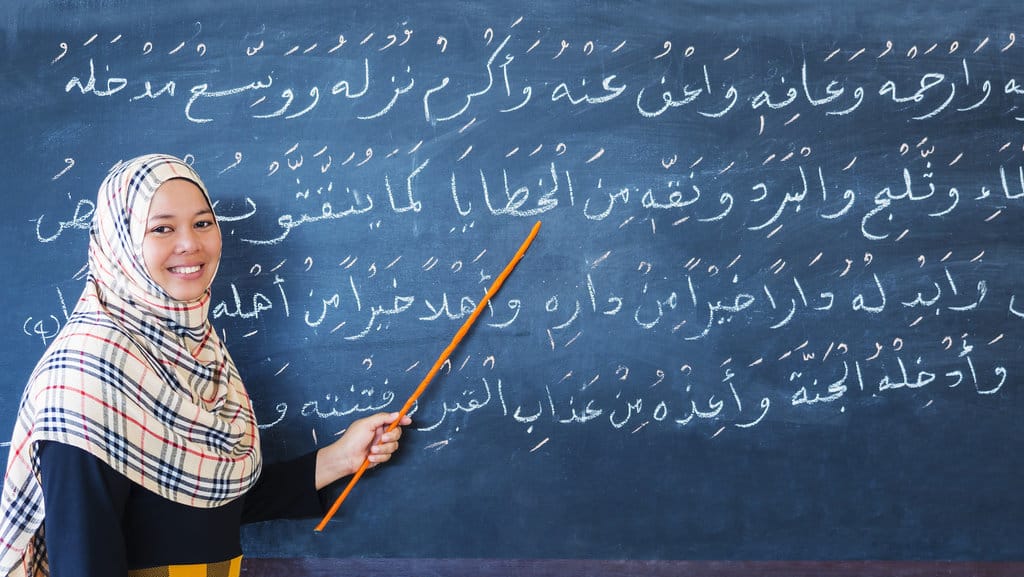 وَارْحَمْهُ وَعَافِهِ وَاعْفُ عَنْهُ وَأَكْرِمْ نُزُلَهُ وَوَسِّعْ مَدْخَلَهُ
وَثَلْجٍ وَالْبَرَدِ وَنَقِّهِ مِنَ الْخَطَايَا كَمَا
وَابْدِلْهُ دَارًا خَيْرًا مِنْ دَارِهِ وَأَهْلًا خَيْرًا مِنْ أَهْلِهِ
وَأَدْخِلْهُ الْجَنَّةَ وَأَعِذْهُ مِنْ عَذَابِ الْقَبْرِ وَفِتْنَتِهِ وَ